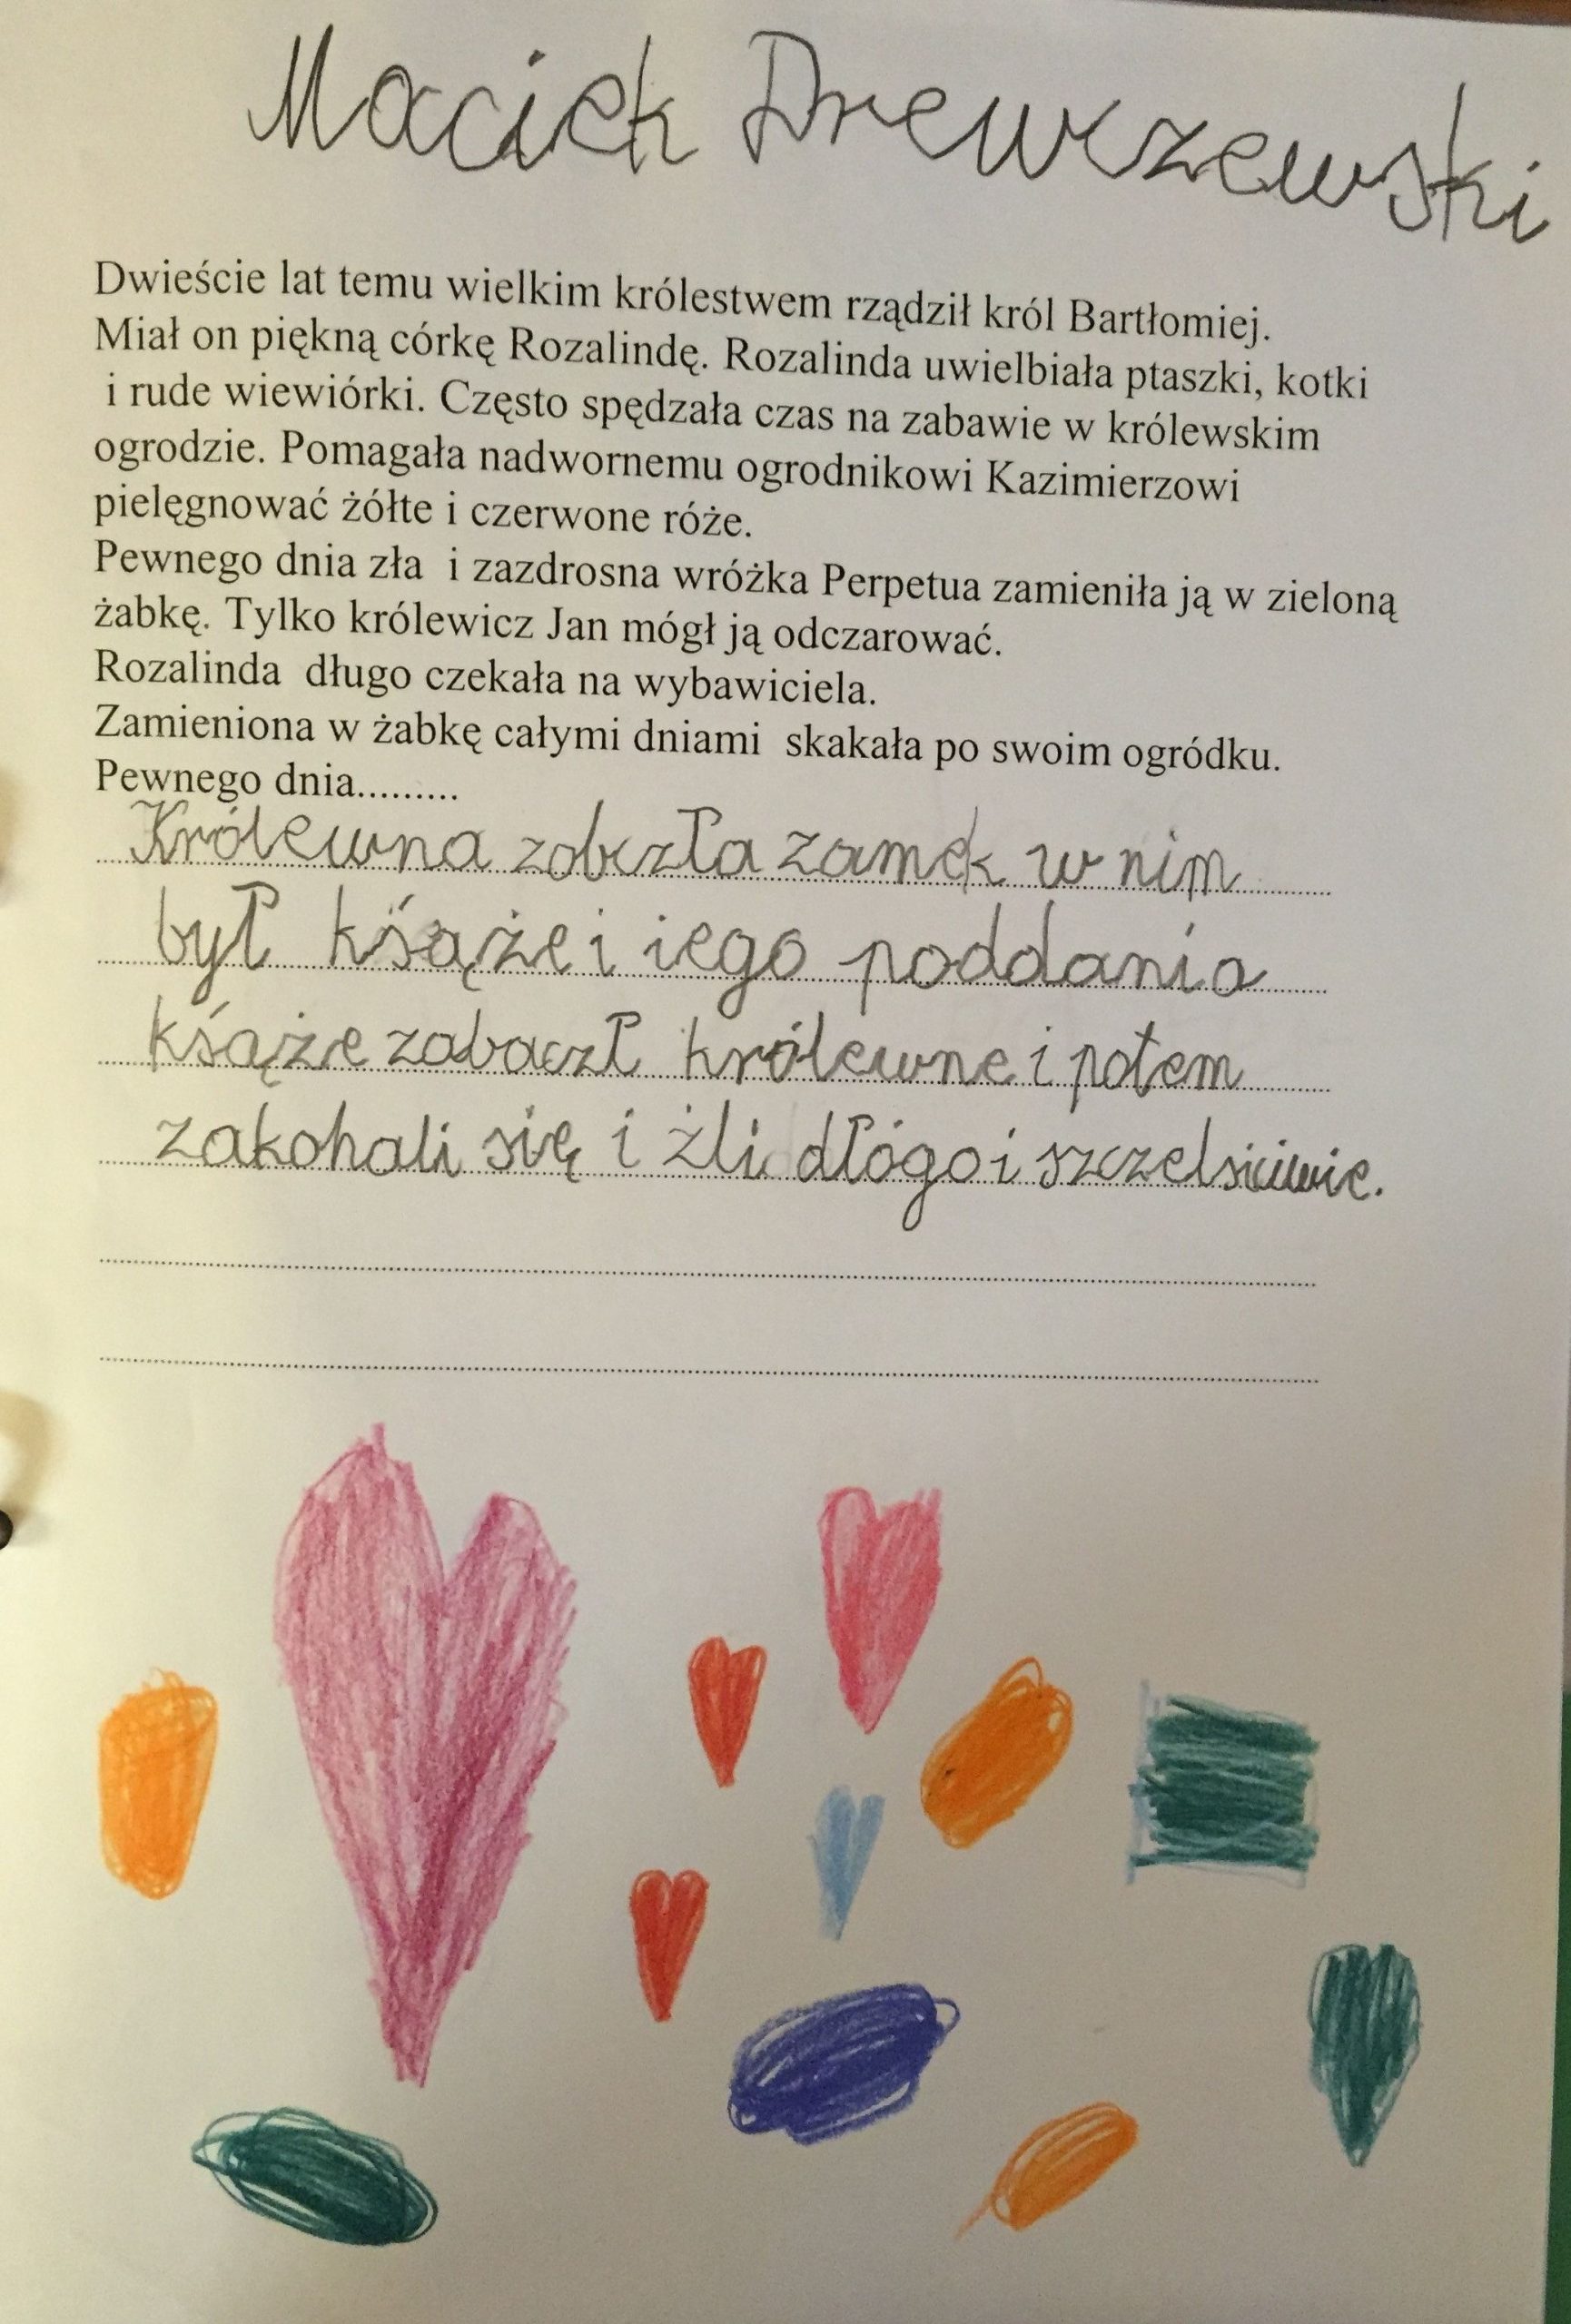 Maciek Drewczewski
Dwieście lat temu wielkim królestwem rządził król Bartłomiej.
Miał on piękną córkę Rozalindę. Rozalinda uwielbiała ptaszki, kotki
i rude wiewiórki. Często spędzała czas na zabawie w królewskim
ogrodzie. Pomagała nadwornemu ogrodnikowi Kazimierzowi
pielęgnować żółte i czerwone róże.
Pewnego dnia zła i zazdrosna wróżka Perpetua zamieniła ją w zieloną
żabkę. Tylko królewicz Jan mógł ją odczarować.
Rozalinda długo czekała na wybawiciela.
Zamieniona w żabkę całymi dniami skakała po swoim ogródku.
Pewnego dnia.........
Królewna zobczła zamek w nim
był kśąże i iego poddania
kśąże zobaczł królewne i potem
zakohali się i żli dłógo i